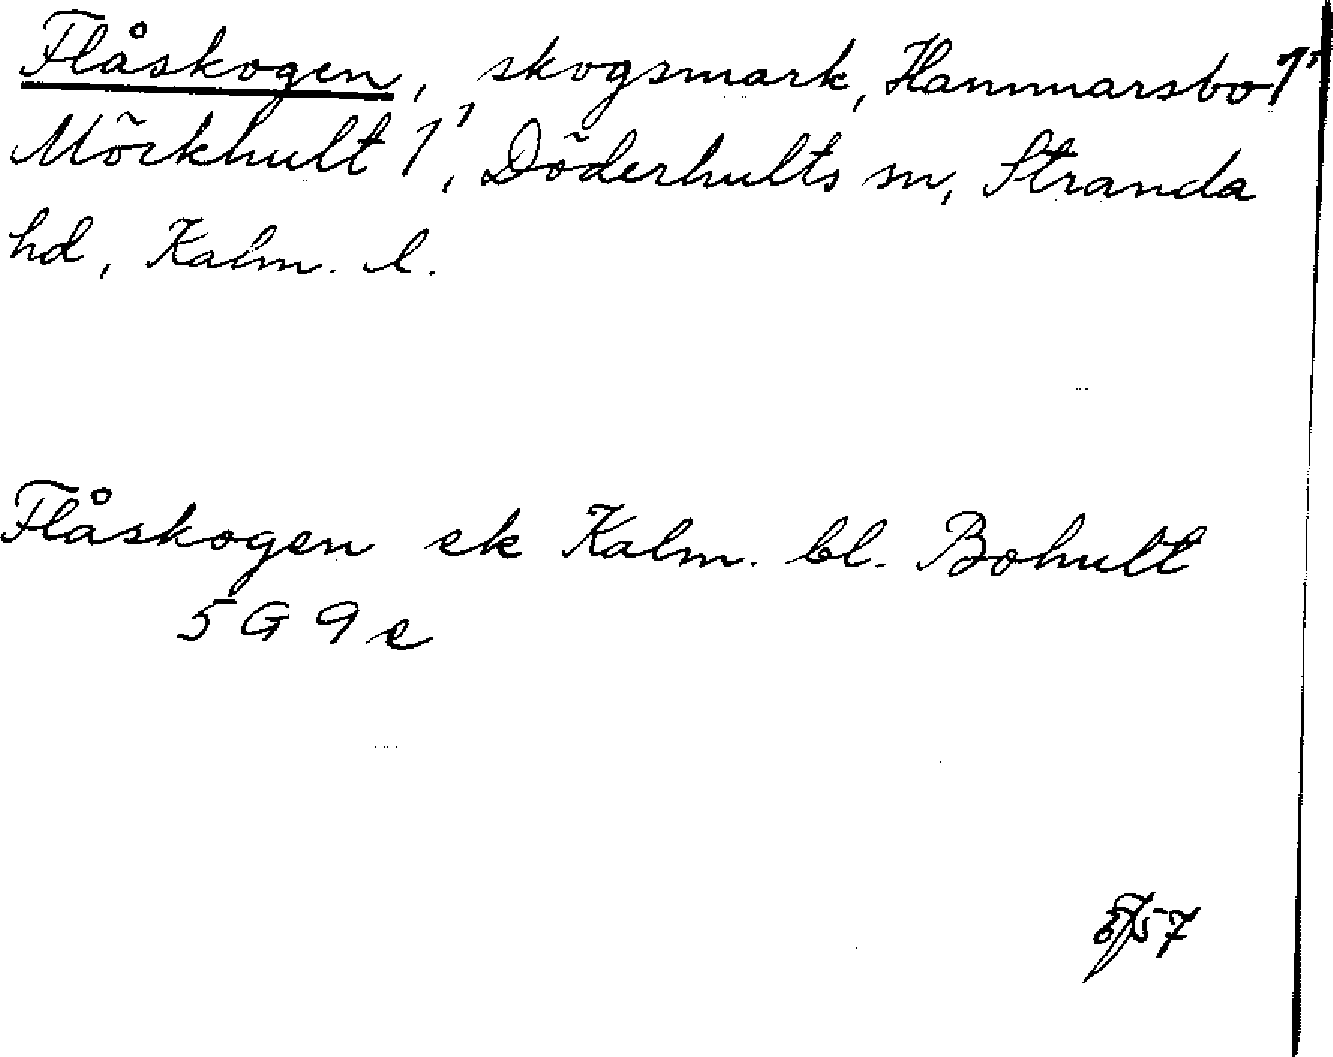 Flåskogen, skogsmark, Hammarsbo 1¹¹
Mörkhult 1¹, Döderhults sn, Stranda
hd, Kalm. l.
Flåskogen ek Kalm. bl. Bohult
5 G 9 e
57